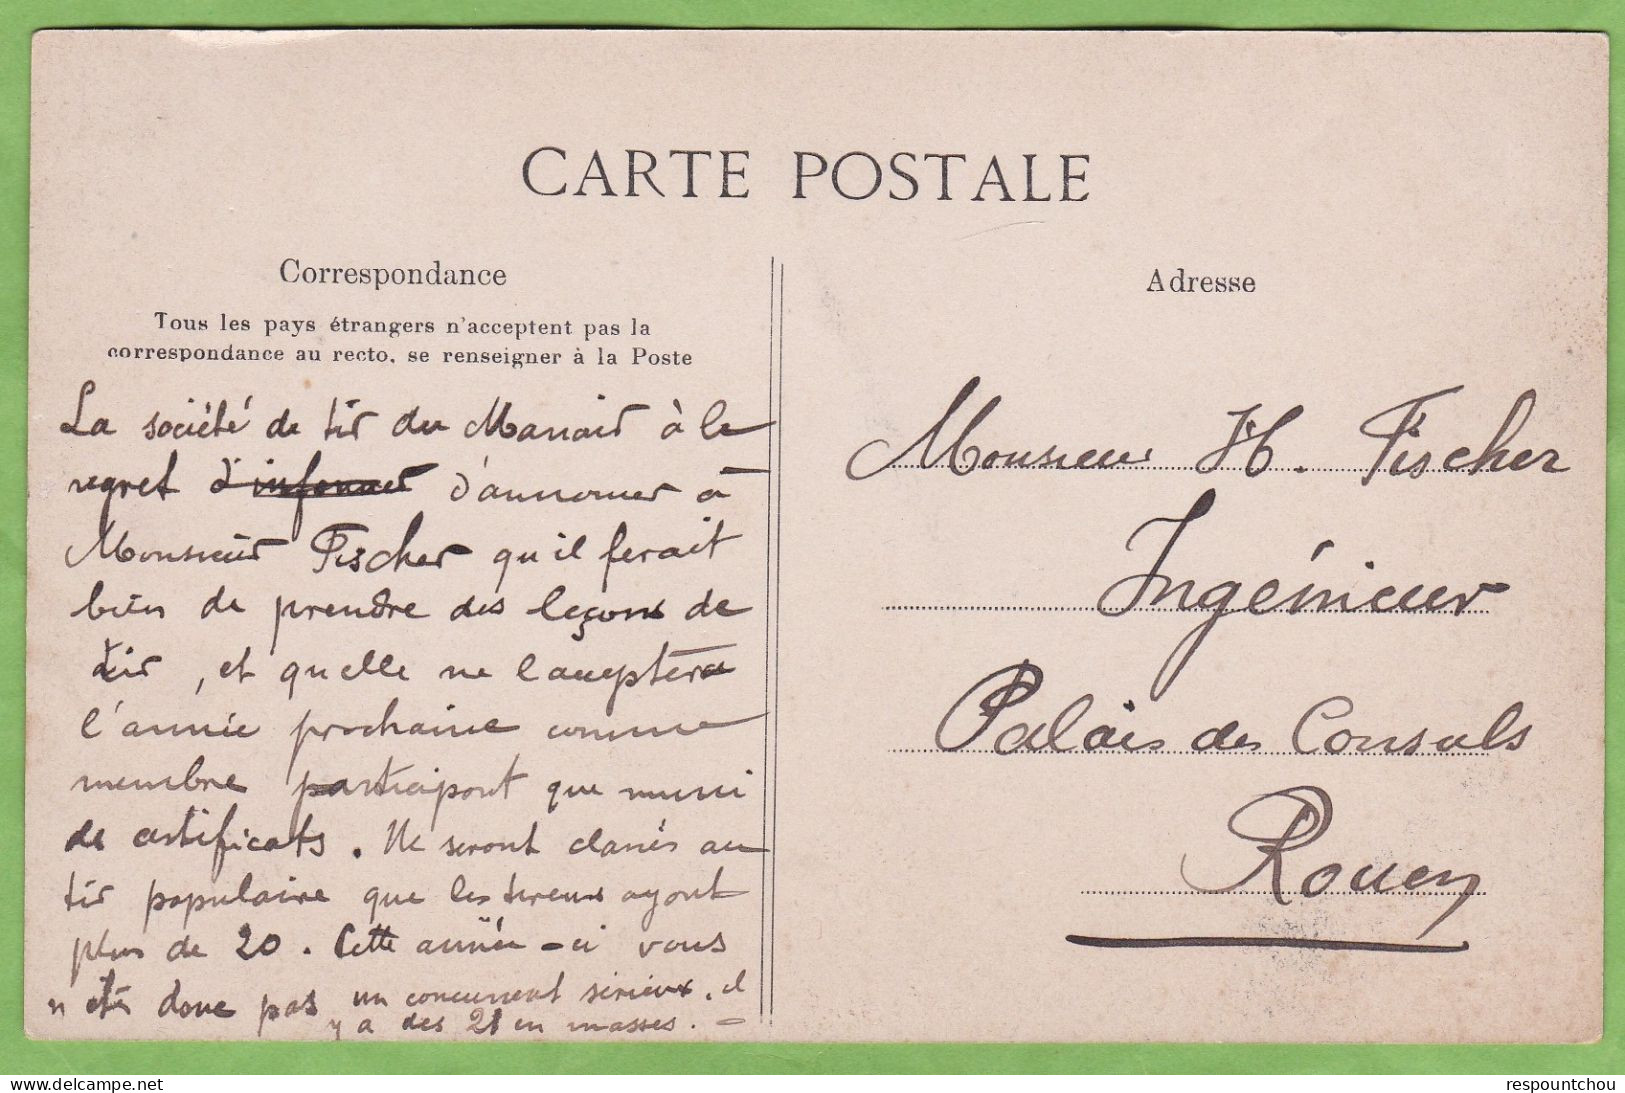 CARTE POSTALE
Correspondance
Tous les pays étrangers n'acceptent pas la
correspondance au recto, se renseigner à la Poste
La société de tir du Manoir à le
regret d'informer d'annoncer à
Monsieur Fischer qu'il ferait
bien de prendre des leçons de
tir, et quelle ne l'acceptera
l'année prochaine comme
membre participant que muni
de certificats. Ne seront classés au
tir populaire que les tireurs ayant
plus de 20. Cette année-ci vous
n'êtes donc pas un concurrent sérieux. il
y a des 21 en masses. -
Adresse
Monsieur H. Fischer
Ingénieur
Palais des Consuls
Rouen
respountchou